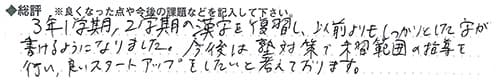 ◆総評 ※良くなった点や今後の課題などを記入して下さい。
3年1学期,2学期の漢字を復習し、以前よりもしっかりとした字が
書けるようになりました。今後は塾対策で未習範囲の指導を
行い、良いスタートアップをしたいと考えております。